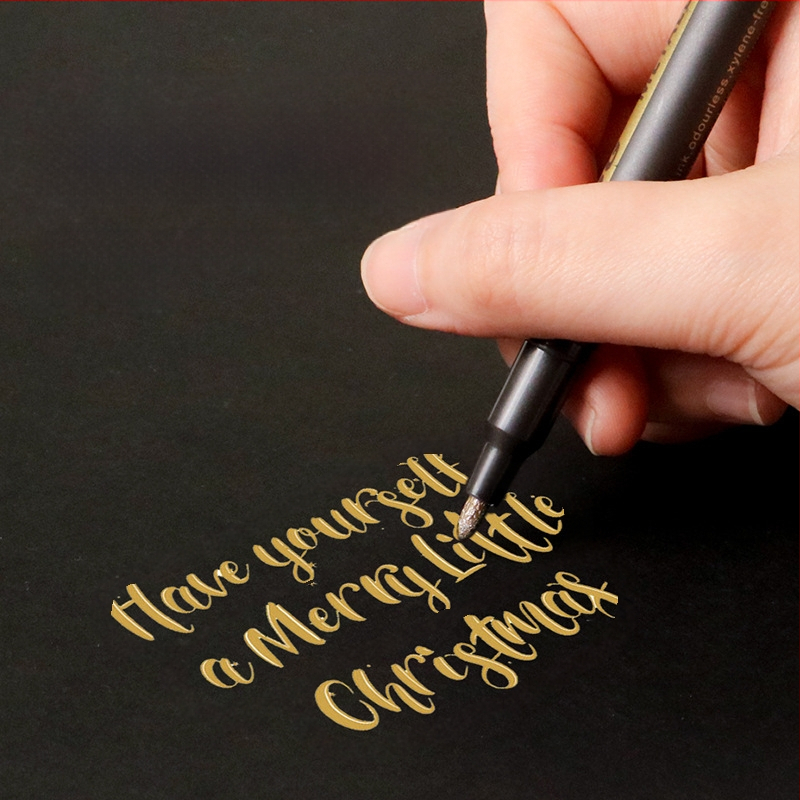 Have yourself
a Merry Little
Christmas
ink.odourless.xylene-fre